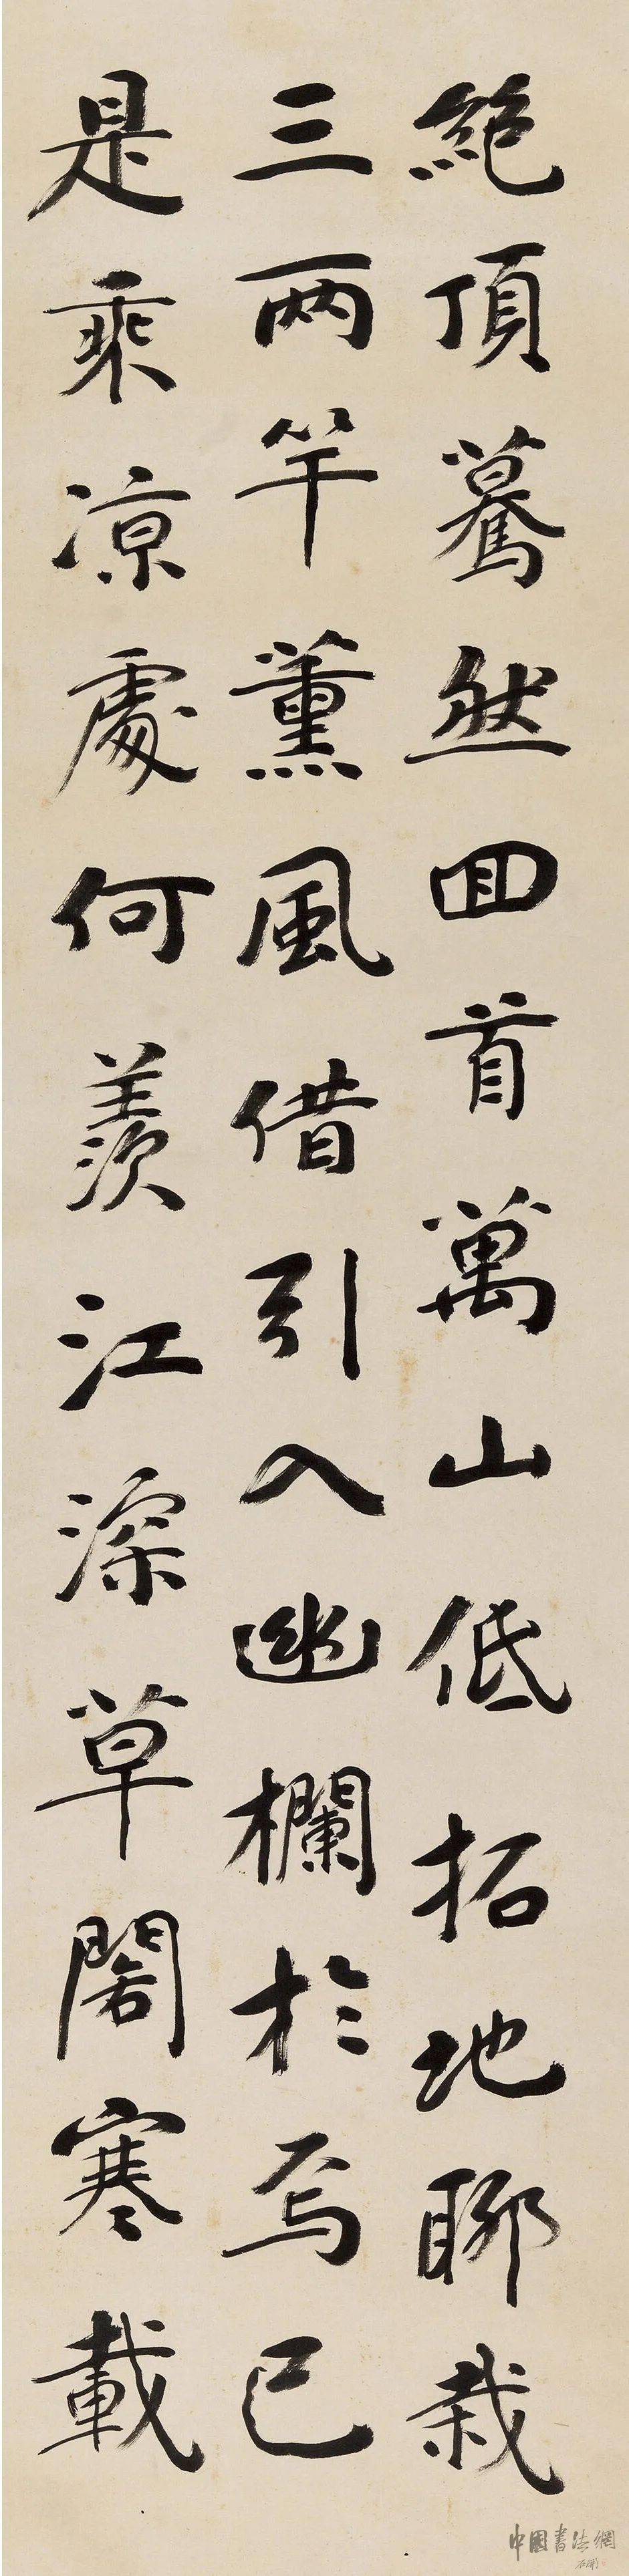 絶頂驀然回首萬山低拓地聊栽
三两竿薰風借引入幽欄於焉已
是乘凉處何羨江深草閣寒載
中國書法網